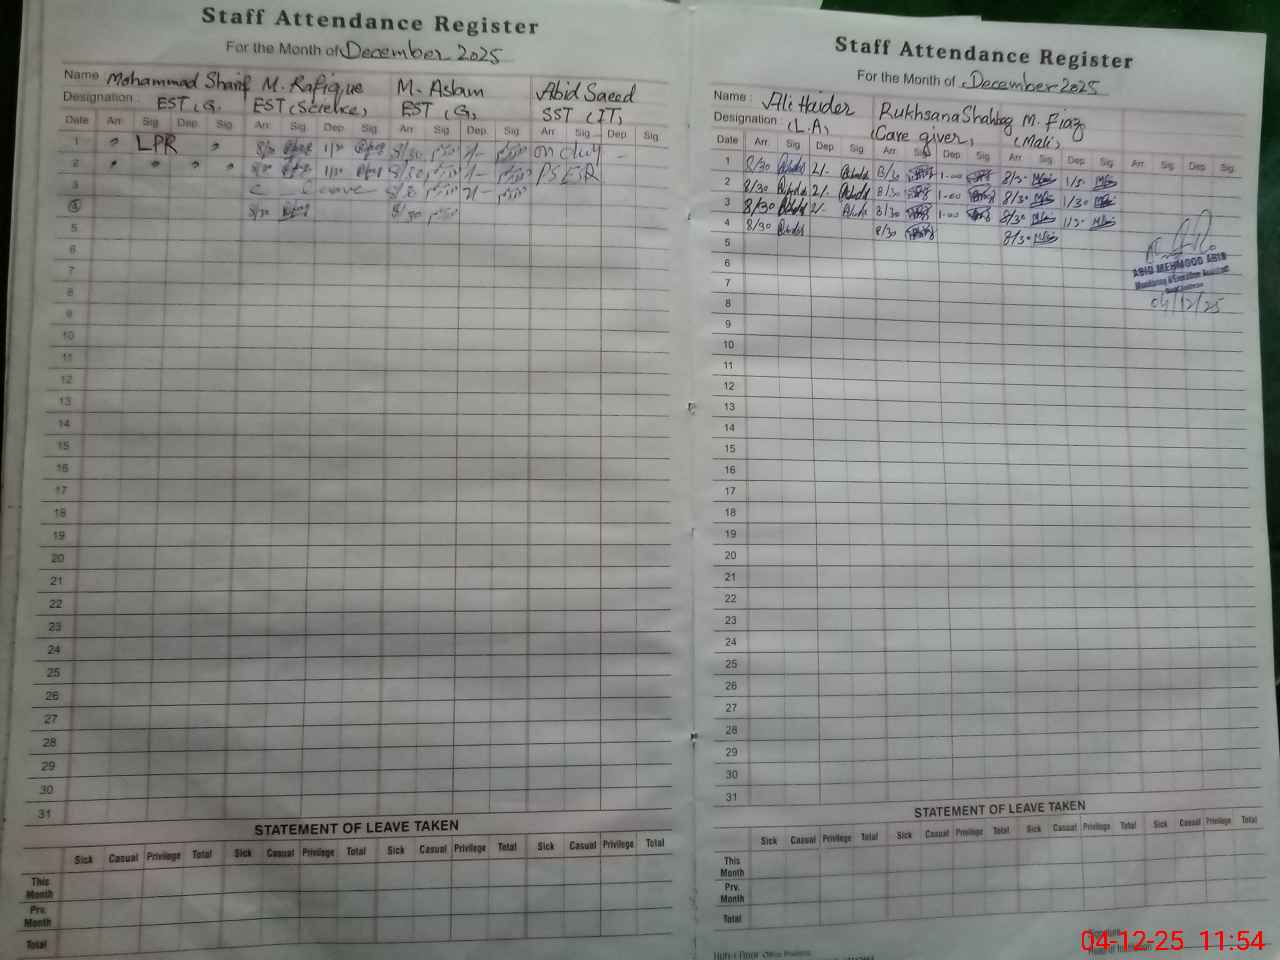 Staff Attendance Register
For the Month of December 2025
Name Mohammad Sharif M. Rafique M. Aslam Abid Saeed
Designation : EST (G) EST (Science) EST (G) SST (IT)
Date Arr. Sig. Dep. Sig. Arr. Sig. Dep. Sig. Arr. Sig. Dep. Sig. Arr. Sig. Dep. Sig.
1 " LPR " " 8/30 1/30 8/30 2/- on duty -
2 " " " " 8/30 1/30 8/30 2/- PSER
3 C Leave 8/30 2/-
4 8/30 8/30
5
6
7
8
9
10
11
12
13
14
15
16
17
18
19
20
21
22
23
24
25
26
27
28
29
30
31
STATEMENT OF LEAVE TAKEN
Sick Casual Privilege Total Sick Casual Privilege Total Sick Casual Privilege Total Sick Casual Privilege Total
This Month
Prv. Month
Total
Staff Attendance Register
For the Month of December 2025
Name : Ali Haider Rukhsana Shahbaz M. Fiaz
Designation : (L.A) (Care giver) (Mali)
Date Arr. Sig. Dep. Sig. Arr. Sig. Dep. Sig. Arr. Sig. Dep. Sig. Arr. Sig. Dep. Sig.
1 8/30 2/- 8/30 1-00 8/30 1/30
2 8/30 2/- 8/30 1-00 8/30 1/30
3 8/30 2/- 8/30 1-00 8/30 1/30
4 8/30 8/30 8/30
5
6
7
8
9
10
11
12
13
14
15
16
17
18
19
20
21
22
23
24
25
26
27
28
29
30
31
ABID MEHMOOD ABID
Monitoring & Evaluation Assistant
04/12/25
STATEMENT OF LEAVE TAKEN
Sick Casual Privilege Total Sick Casual Privilege Total Sick Casual Privilege Total Sick Casual Privilege Total
This Month
Prv. Month
Total
Signature
Head of Institution
04-12-25 11:54